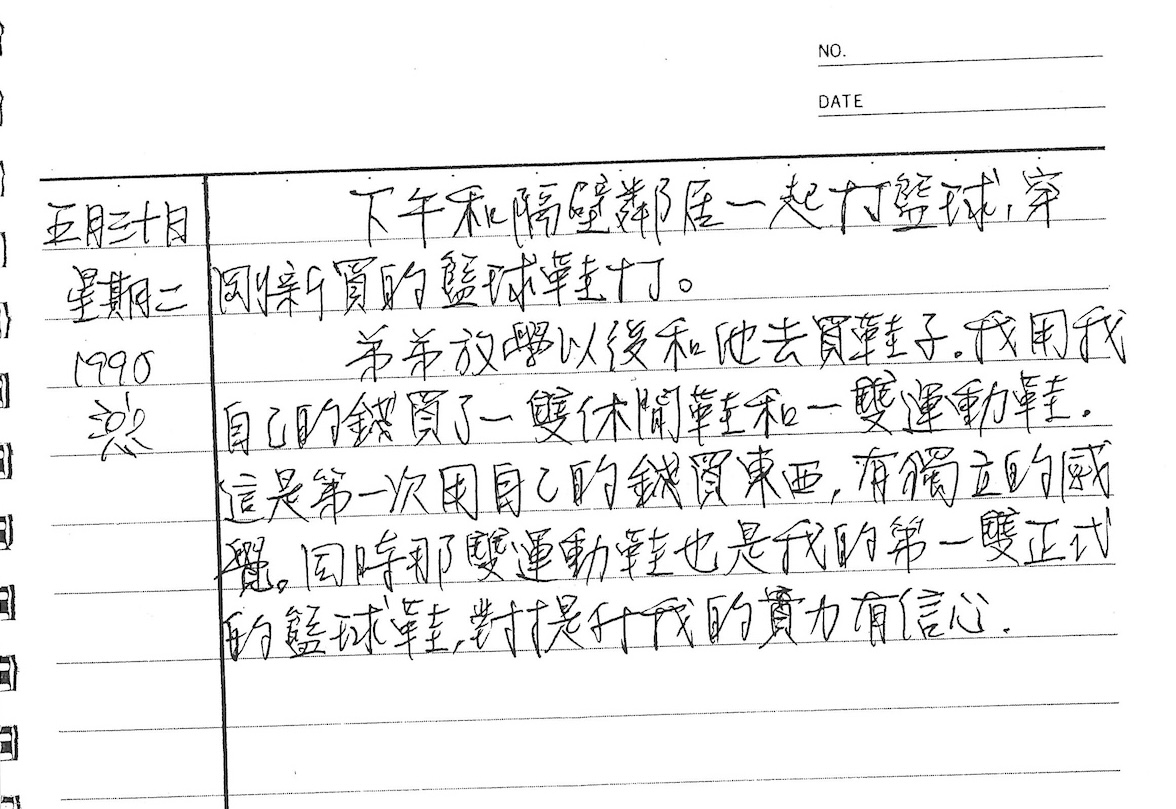 NO.
DATE
五月三十日
星期二
1990
下午和隔壁鄰居一起打籃球，穿
剛新買的籃球鞋打。
弟弟放學以後和他去買鞋子。我用我
自己的錢買了一雙休閒鞋和一雙運動鞋.
這是第一次用自己的錢買東西，有獨立的感
覺。同時那雙運動鞋也是我的第一雙正式
的籃球鞋，對提升我的實力有信心.